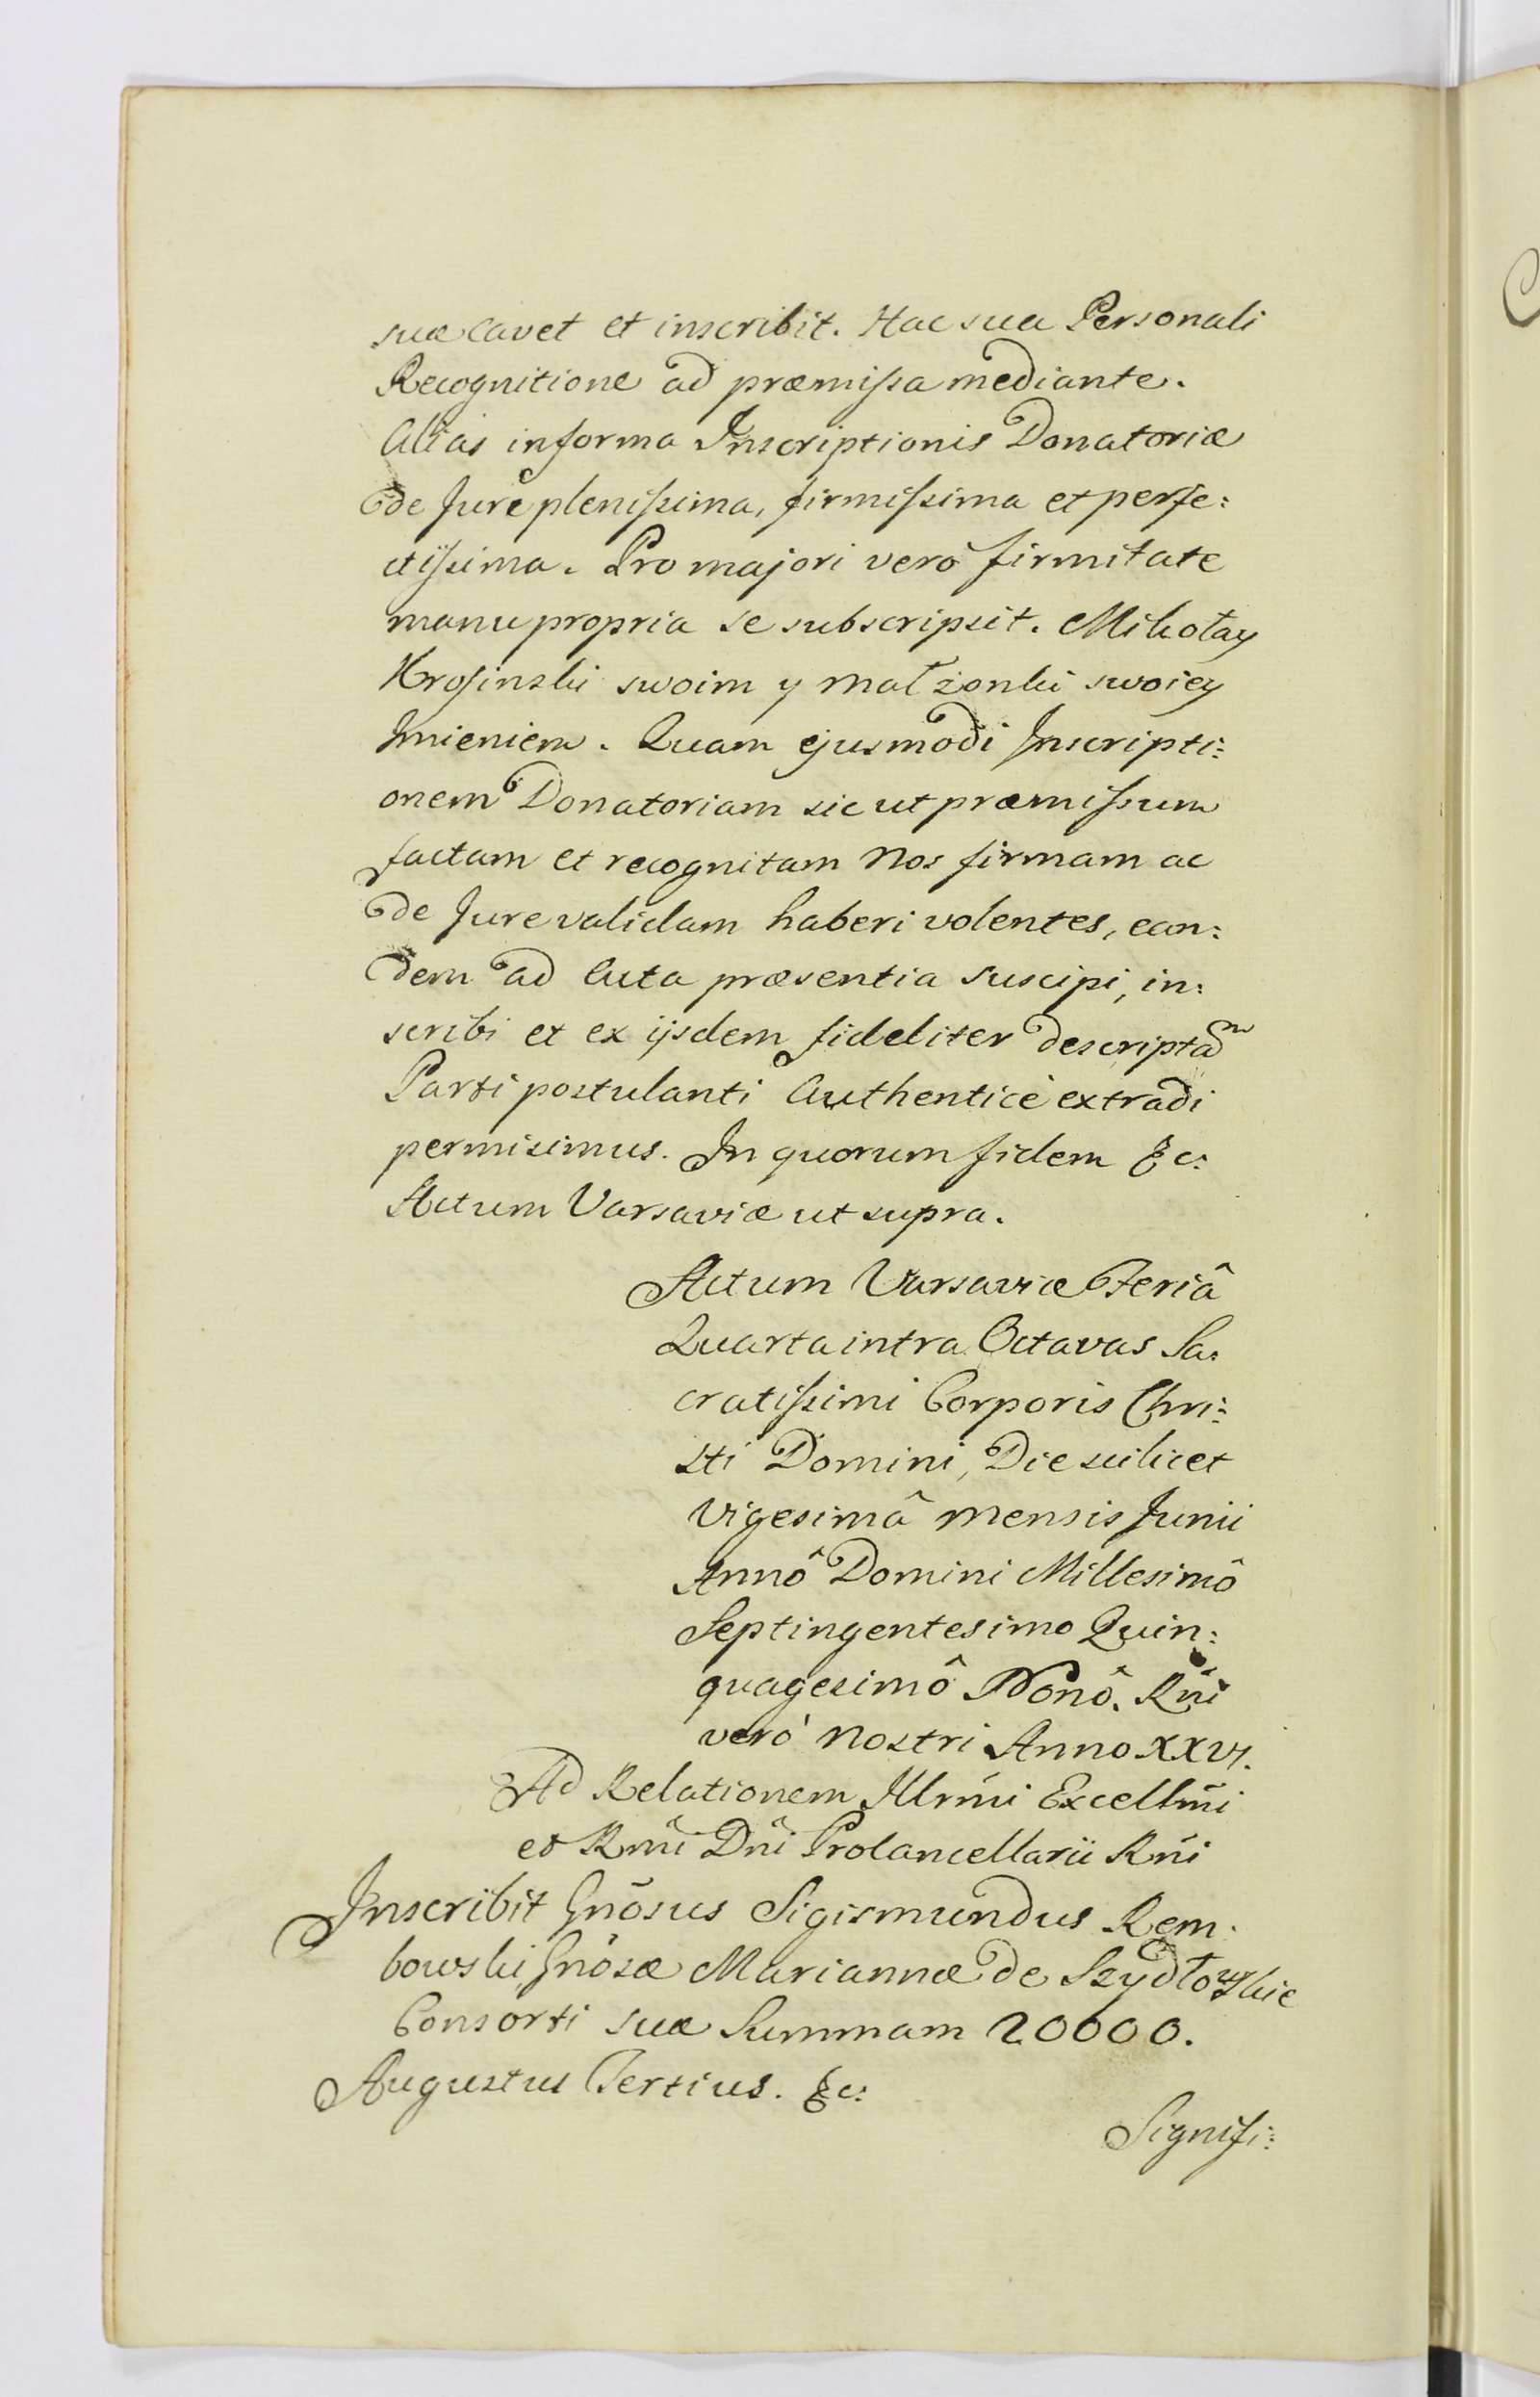 suæ cavet et inscribit. Hac sua Personali
Recognitione ad præmissa mediante.
Alias in forma Inscriptionis Donatoriæ
de Jure plenissima, firmissima et perfe:
ctissima. Pro majori verò firmitate
manu propria se subscripsit. Mikołay
Krosinski swoim y małżonki swoiey
Jmieniem. Quam ejusmodi Inscripti:
onem Donatoriam sic ut præmissum
factam et recognitam Nos firmam ac
de Jure validam haberi volentes, ean:
dem ad Acta præsentia suscipi, in:
scribi et ex ijsdem fideliter descriptam
Parti postulanti Authenticè extradi
permisimus. In quorum fidem &c:
Actum Varsaviæ ut supra.
Actum Varsaviæ Feriâ
Quarta intra Octavas Sa:
cratissimi Corporis Chri:
sti Domini, Die scilicet
Vigesimâ Mensis Junii
Annô Domini Millesimô
Septingentesimo Quin:
quagesimô Nonô. Rñi
verò Nostri Anno XXVI.
Ad Relationem Illrmi Excellmi
et Rmi Dñi Procancellarii Rñi
Inscribit Gñosus Sigismundus Rem:
bowski Gñosæ Mariannæ de Szydłowskie
Consorti suæ Summam 20000.
Augustus Tertius. &c:
Signifi: